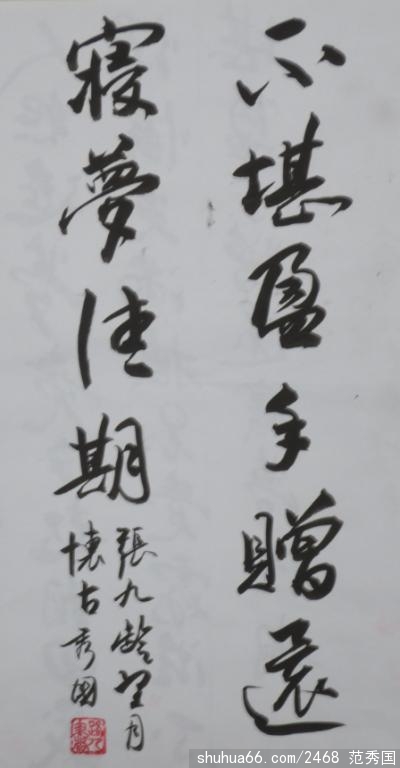 不堪盈手贈還
寢夢佳期
張九齡望月
懷古秀國
shuhua66.com/2468 范秀国